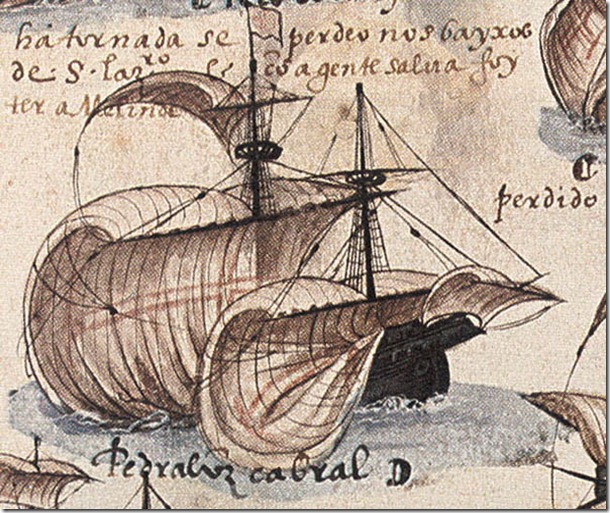 há tornada se perdeo nos bayxos
de S. lazro e cõ a gente salva foy
ter a Melinde
perdido
Pedralvz cabral D